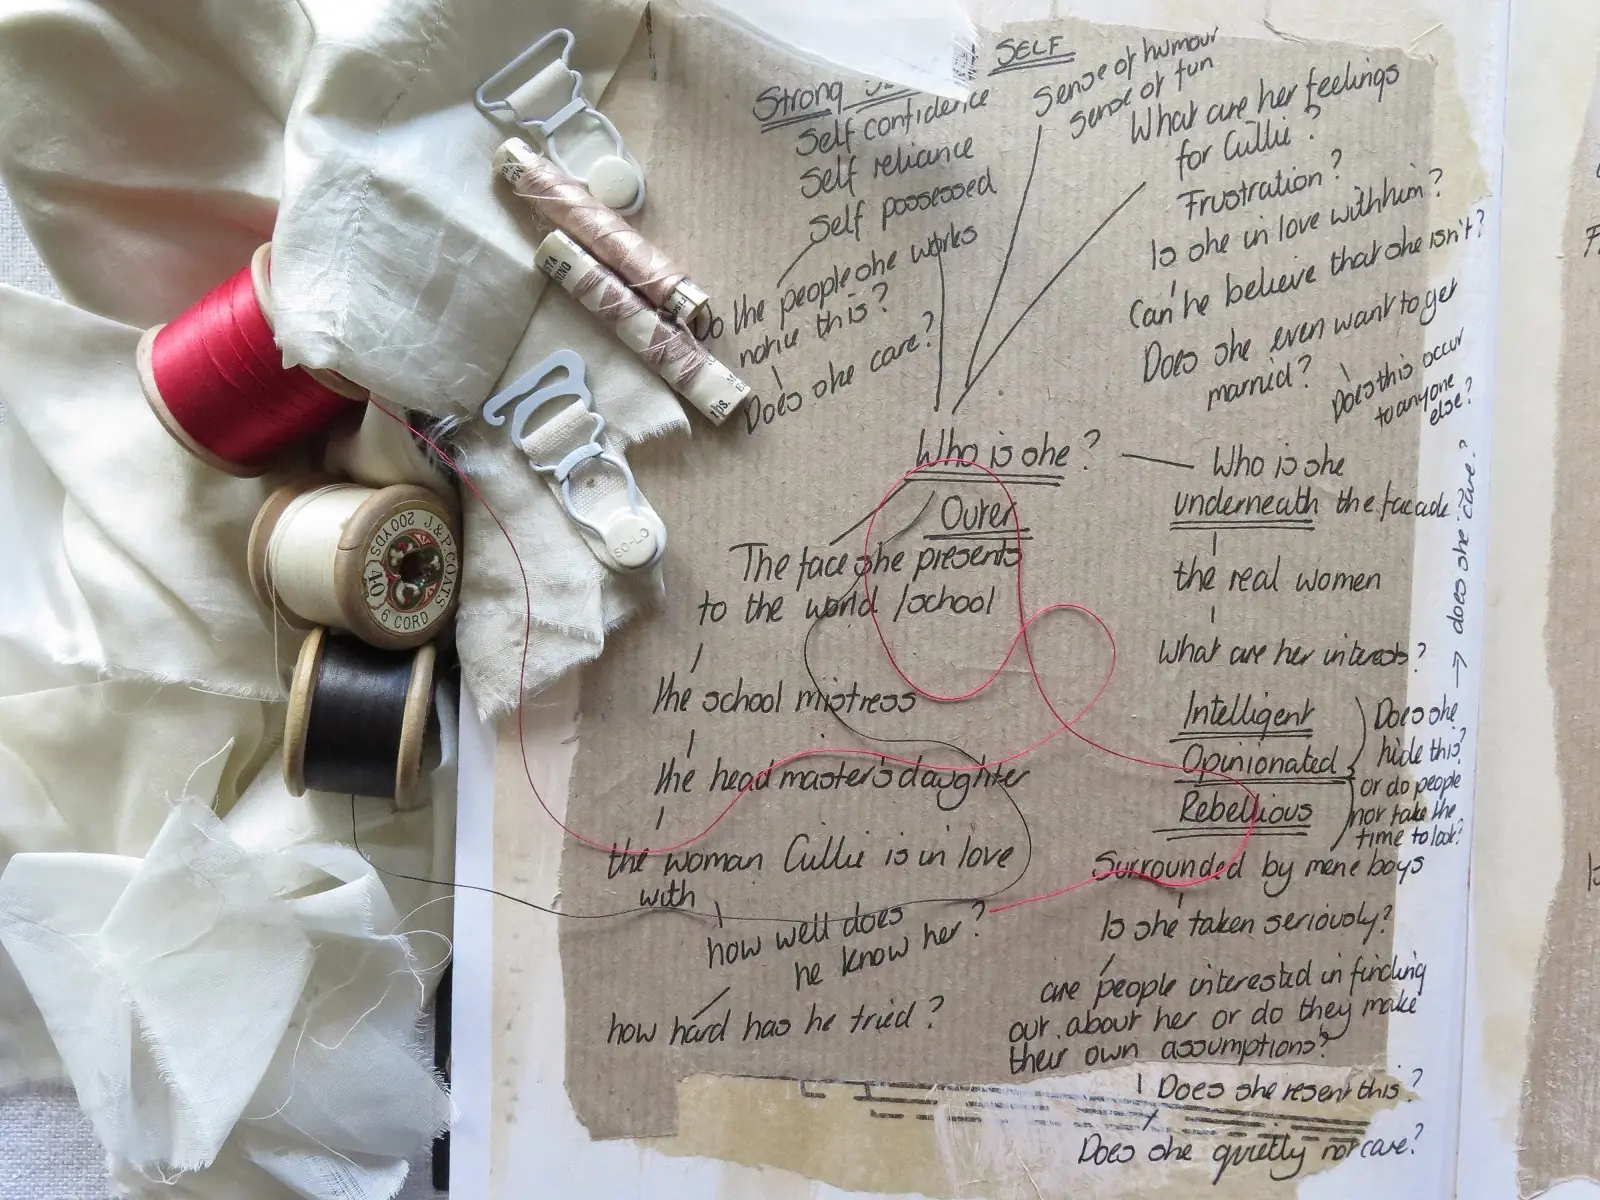 SELF
Strong
Self confidence
Self reliance
Self possessed
Do the people she works
notice this?
Does she care?
Sense of humour
sense of fun
What are her feelings
for Cullie?
Frustration?
Is she in love with him?
Can he believe that she isn't?
Does she even want to get
married?
Does this occur
to anyone
else?
Who is she?
Outer
The face she presents
to the world / school
the school mistress
the head master's daughter
the woman Cullie is in love
with
how well does
he know her?
how hard has he tried?
Who is she
underneath the facade?
the real women
What are her interests?
Intelligent
Opinionated
Rebellious
Does she
hide this?
or do people
not take the
time to look?
→ does she care?
Surrounded by men e boys
Is she taken seriously?
are people interested in finding
out about her or do they make
their own assumptions?
Does she resent this?
Does she quietly not care?
J. & P. COATS
200 YDS
40
6 CORD